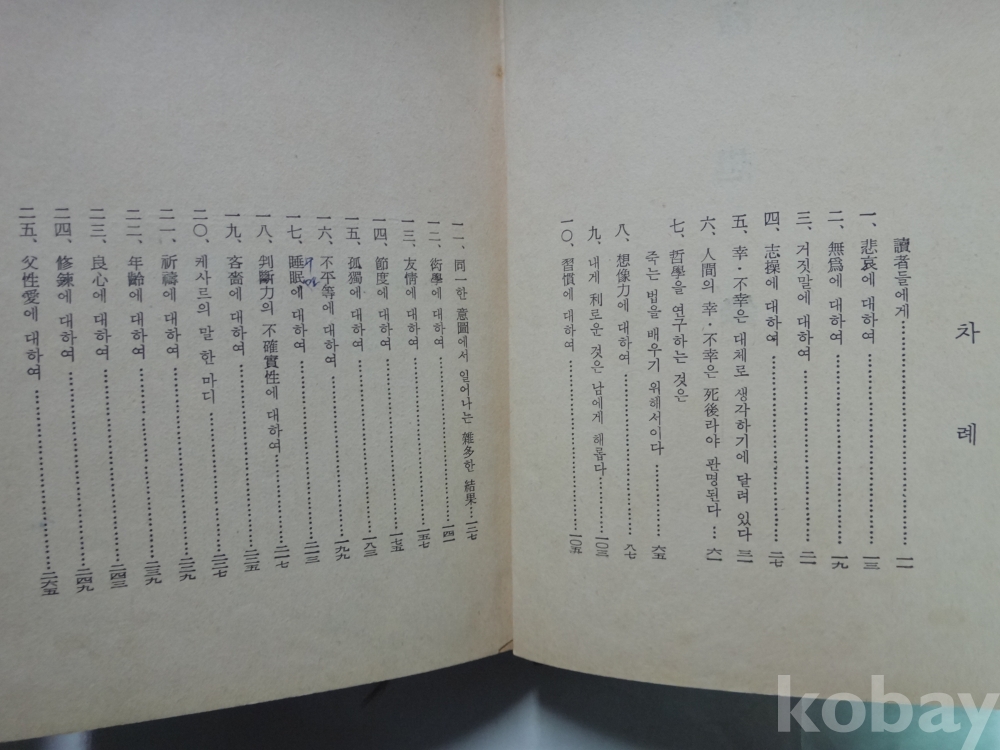 차례
讀者들에게……………………一一
一、悲哀에 대하여……………………一三
二、無爲에 대하여……………………一九
三、거짓말에 대하여……………………二一
四、志操에 대하여……………………二七
五、幸・不幸은 대체로 생각하기에 달려 있다 三一
六、人間의 幸・不幸은 死後라야 판명된다…六一
七、哲學을 연구하는 것은
죽는 법을 배우기 위해서이다……………………六五
八、想像力에 대하여……………………八七
九、내게 利로운 것은 남에게 해롭다……………………一〇三
一〇、習慣에 대하여……………………一〇五
一一、同一한 意圖에서 일어나는 雜多한 結果…一二七
一二、衒學에 대하여……………………一四一
一三、友情에 대하여……………………一五七
一四、節度에 대하여……………………一七五
一五、孤獨에 대하여……………………一八三
一六、不平等에 대하여……………………一九九
一七、睡眠에 대하여……………………二一三
一八、判斷力의 不確實性에 대하여……………………二一七
一九、吝嗇에 대하여……………………二二五
二〇、케사르의 말 한 마디……………………二二七
二一、祈禱에 대하여……………………二二九
二二、年齡에 대하여……………………二三九
二三、良心에 대하여……………………二四三
二四、修鍊에 대하여……………………二四九
二五、父性愛에 대하여……………………二六五
kobay